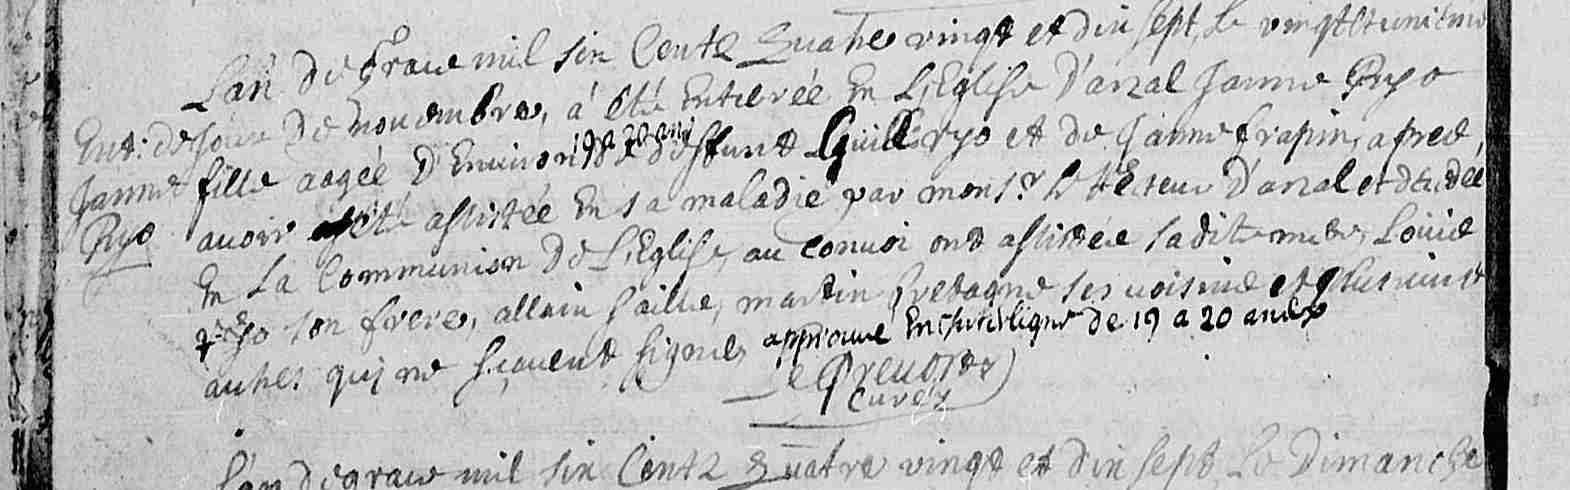 L'an de grace mil six Cents Quatre vingt et dix sept, le vingt et unieme
Ent. de Janne Ryo
jour de novembre, a été Enterrée En L'Eglise D'arzal Janne Ryo
fille aagée D'Environ 19 a 20 ans de deffunt Guill Ryo et de Janne frapin, apres
avoir été assistée En sa maladie par mons.r le Recteur D'arzal et decedée
En La Communion De L'Eglise, au convoi ont assistée sadite mere, Louis
Ryo son frere, allain Saillé, martin Bretagne ses voisins et plusieurs
autres qui ne sçavent signer, approuvé En interligne de 19 a 20 ans
Curé
L'an de grace mil six Cents Quatre vingt et dix sept Le Dimanche